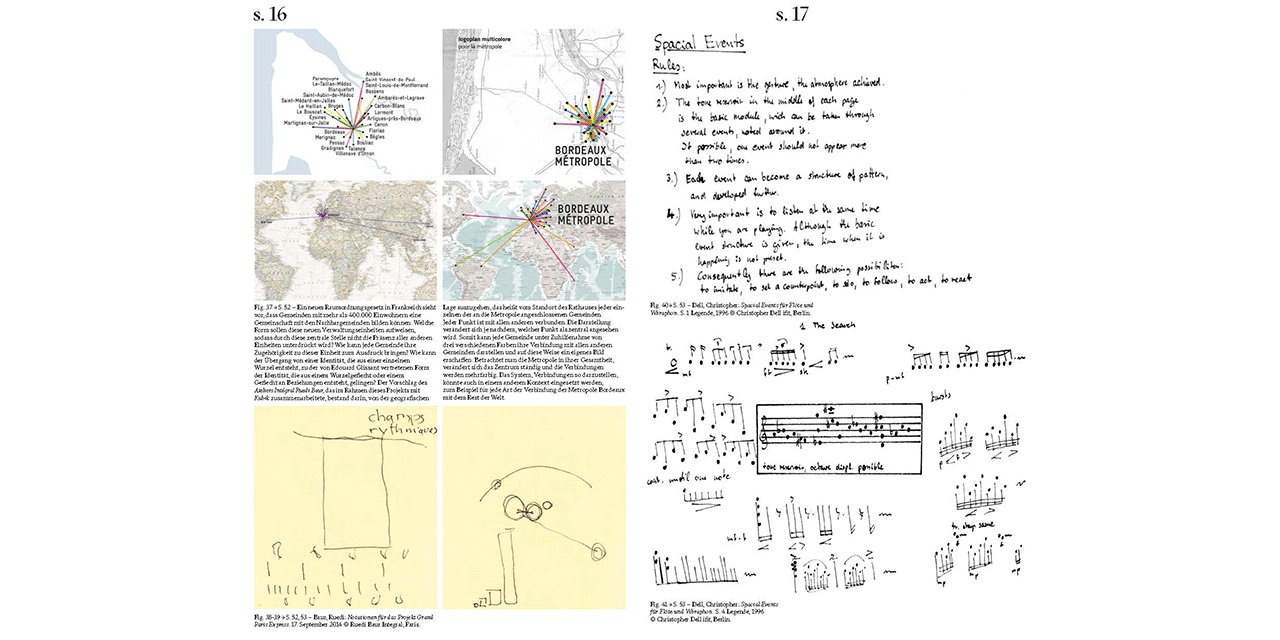 s. 16
Ambès
Parempuyre
Saint Vincent-de-Paul
Le-Taillan-Médoc
Saint-Louis-de-Montferrand
Blanquefort
Bassens
Saint-Aubin-de-Médoc
Ambarès-et-Lagrave
Saint-Médard-en-Jalles
Carbon-Blanc
Le Haillan Bruges
Lormont
Le Bouscat
Artigues-près-Bordeaux
Eysines
Cenon
Martignas-sur-Jalle
Floirac
Bordeaux
Bègles
Mérignac
Bouliac
Pessac
Talence
Gradignan
Villenave d'Ornon
logoplan multicolore
pour la métropole
BORDEAUX
MÉTROPOLE
BORDEAUX
MÉTROPOLE
Fig. 37 » S. 52 – Ein neues Raumordnungsgesetz in Frankreich sieht
vor, dass Gemeinden mit mehr als 400.000 Einwohnern eine
Gemeinschaft mit den Nachbargemeinden bilden können. Welche
Form sollen diese neuen Verwaltungseinheiten aufweisen,
sodass durch diese zentrale Stelle nicht die Präsenz aller anderen
Einheiten unterdrückt wird? Wie kann jede Gemeinde ihre
Zugehörigkeit zu dieser Einheit zum Ausdruck bringen? Wie kann
der Übergang von einer Identität, die aus einer einzelnen
Wurzel entsteht, zu der von Edouard Glissant vertretenen Form
der Identität, die aus einem Wurzelgeflecht oder einem
Geflecht an Beziehungen entsteht, gelingen? Der Vorschlag des
Ateliers Intégral Ruedi Baur, das im Rahmen dieses Projekts mit
Kubik zusammenarbeitete, bestand darin, von der geografischen
Lage auszugehen, das heißt vom Standort des Rathauses jeder ein-
zelnen der an die Metropole angeschlossenen Gemeinden.
Jeder Punkt ist mit allen anderen verbunden. Die Darstellung
verändert sich je nachdem, welcher Punkt als zentral angesehen
wird. Somit kann jede Gemeinde unter Zuhilfenahme von
drei verschiedenen Farben ihre Verbindung mit allen anderen
Gemeinden darstellen und auf diese Weise ein eigenes Bild
erschaffen. Betrachtet man die Metropole in ihrer Gesamtheit,
verändert sich das Zentrum ständig und die Verbindungen
werden mehrfarbig. Das System, Verbindungen so darzustellen,
könnte auch in einem anderen Kontext eingesetzt werden,
zum Beispiel für jede Art der Verbindung der Metropole Bordeaux
mit dem Rest der Welt.
champs
rythmiques
Fig. 38-39 » S. 52, 53 – Baur, Ruedi: Notationen für das Projekt Grand
Paris Express. 17. September 2014 © Ruedi Baur Integral, Paris.
s. 17
Spacial Events
Rules:
1.) Most important is the gesture, the atmosphere achieved.
2.) The tone reservoir in the middle of each page
is the basic module, wich can be taken through
several events, noted around it.
If possible, one event should not appear more
than two times.
3.) Each event can become a structure of pattern,
and developed further.
4.) Very important is to listen at the same time
while you are playing. Although the basic
event structure is given, the time when it is
happening is not preset.
5.) Consequently there are the following possibilities:
to imitate, to set a counterpoint, to solo, to follow, to act, to react
Fig. 40 » S. 53 – Dell, Christopher: Spacial Events für Flöte und
Vibraphon. S. 1 Legende, 1996 © Christopher Dell ifit, Berlin.
1 The Search
mf
p-mf
bursts
tone reservoir, octave displ. possible
cont. until one note
tr. step same
mf-f
mp
mp
Fig. 41 » S. 53 – Dell, Christopher: Spacial Events
für Flöte und Vibraphon. S. 4 Legende, 1996
© Christopher Dell ifit, Berlin.